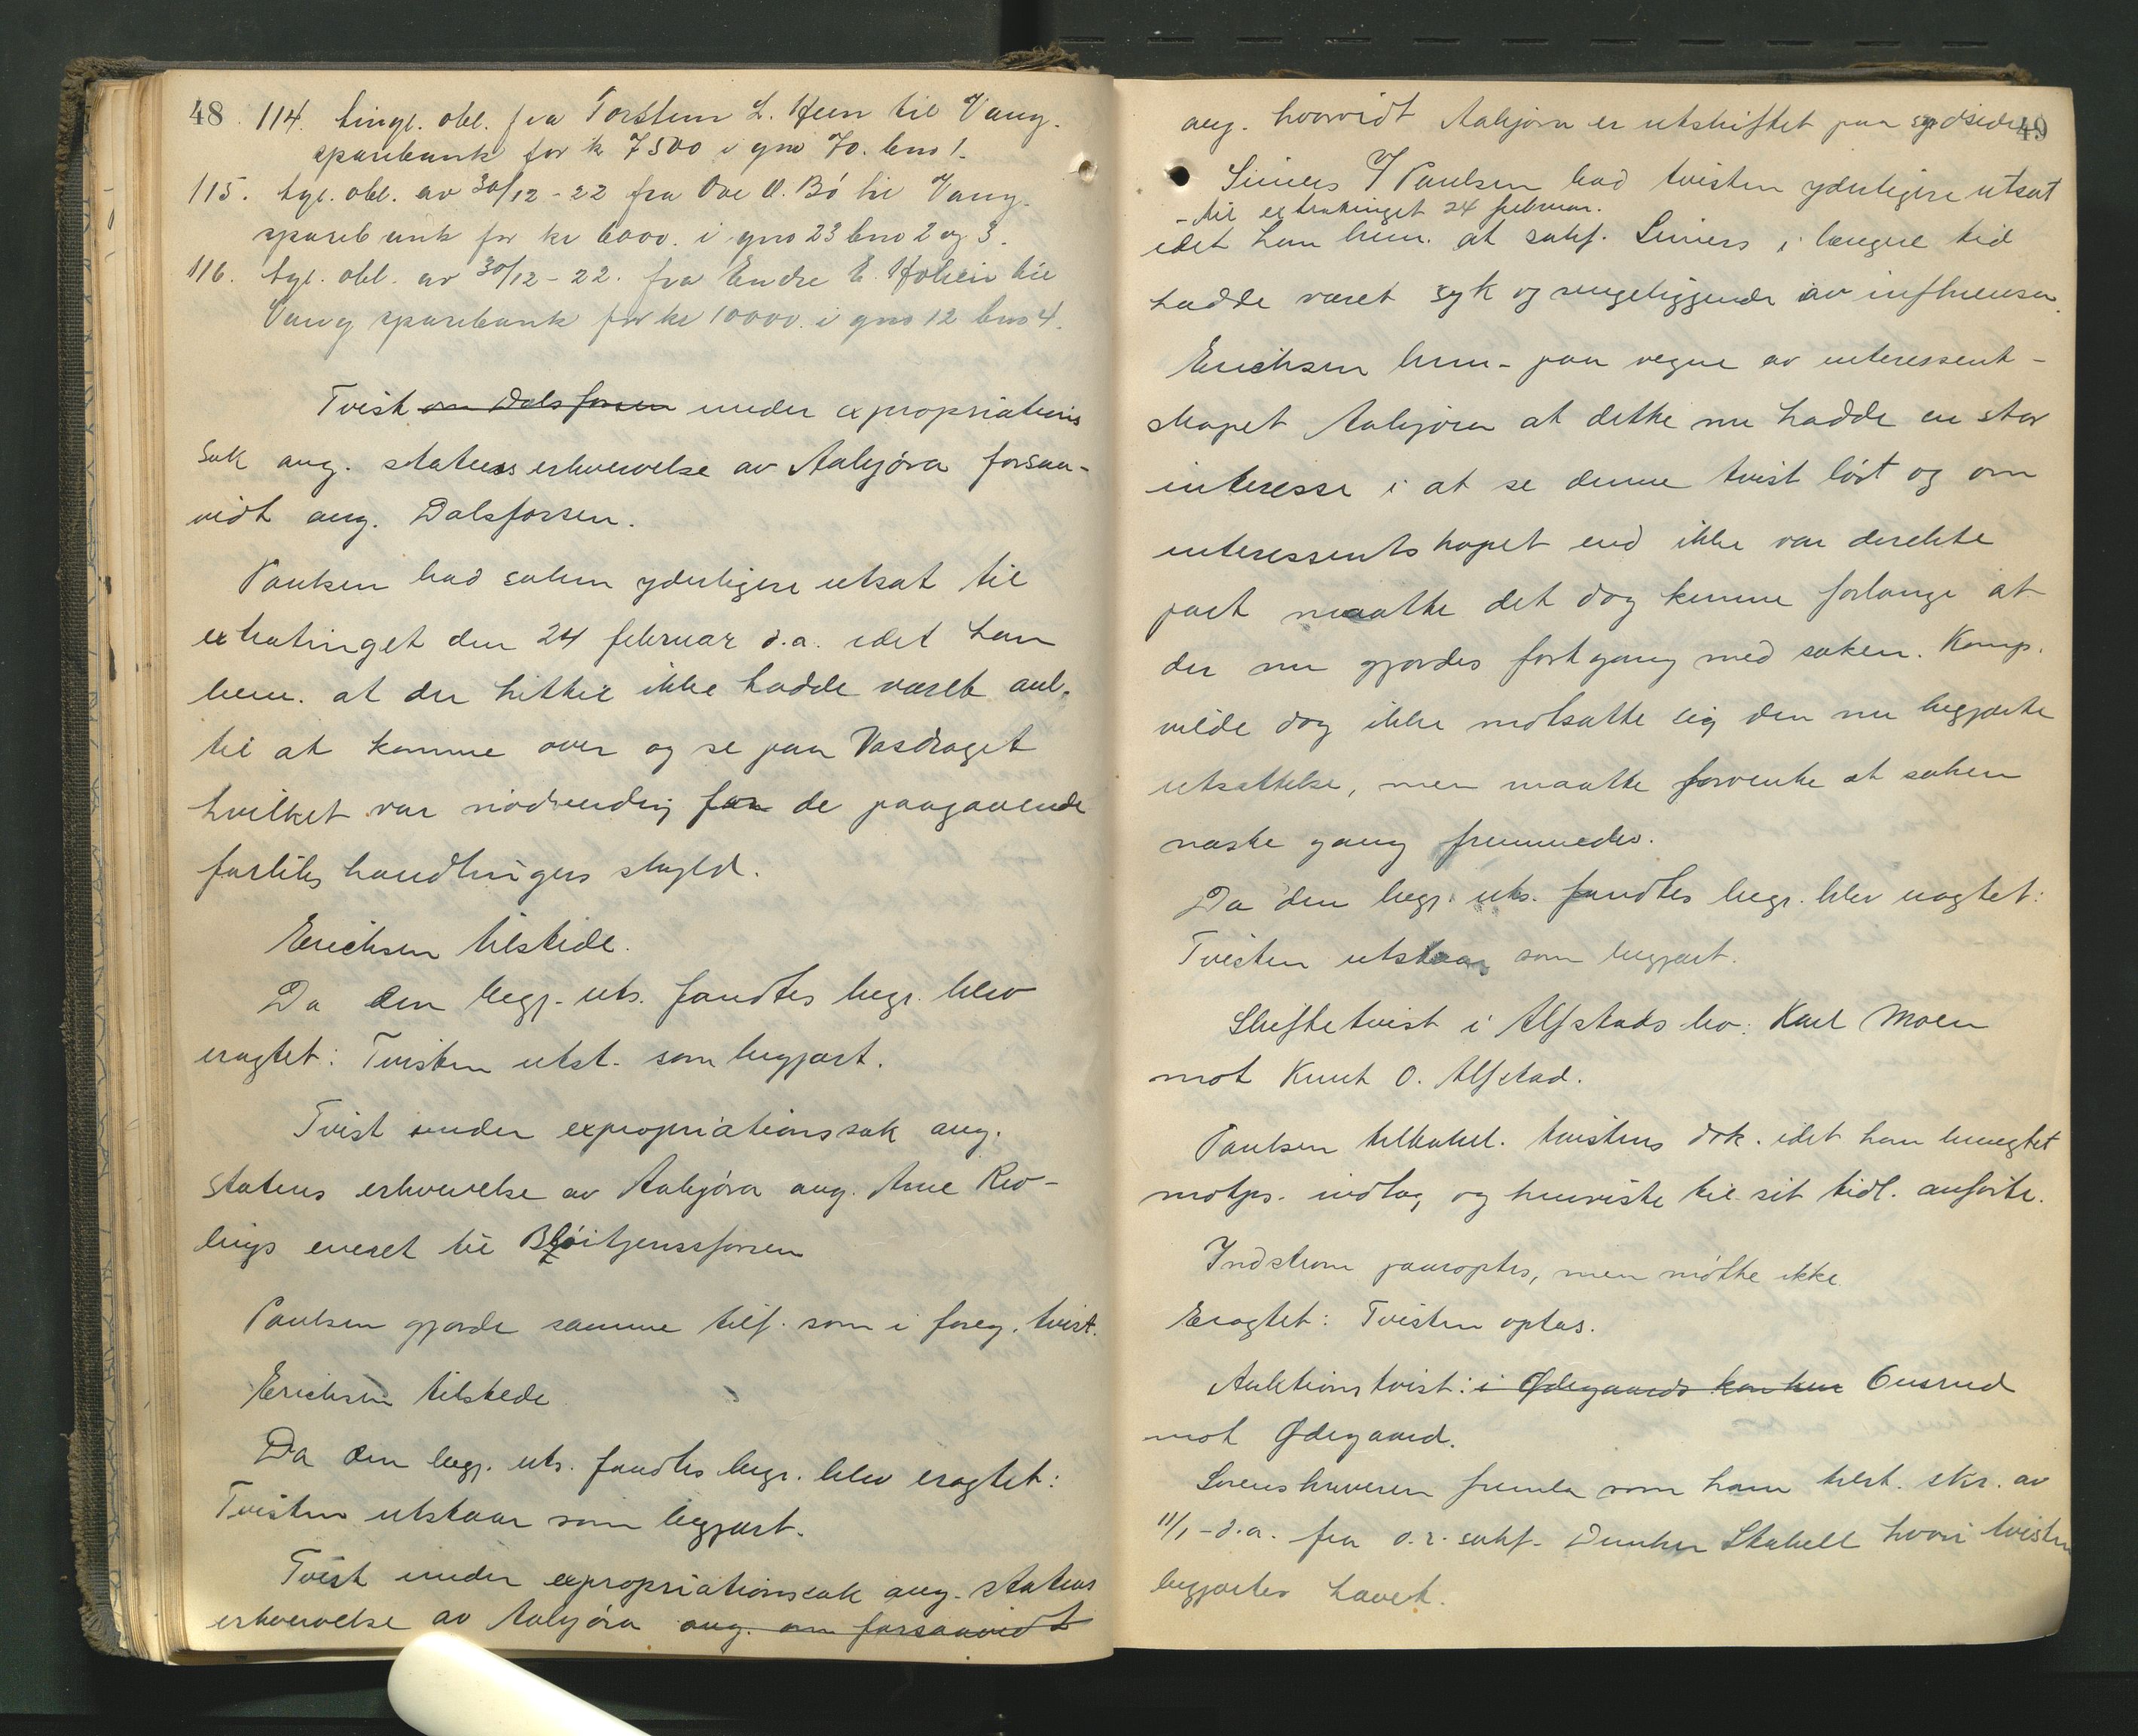 48 114. tingl. obl. fra Torstein L. Hem til Vang.
sparebank for kr 7500 i gno 70. bno 1.
115. tgl. obl. av 30/12-22 fra Ove O. Bö til Vang.
sparebank for kr 6000. i gno 23 bno 2 og 3.
116. tgl. obl. av 30/12-22. fra Endre E. Holien til
Vang sparebank for kr 10000. i gno 12 bno 4.
Tvist om Dalsfossen under expropriations
sak ang. statens erhvervelse av Aabjöra forsaa-
vidt ang. Dalsfossen.
Paulsen bad saken yderligere utsat til
extratinget den 24 februar d.a. idet han
bem. at der hittil ikke hadde været anl.
til at komme over og se paa Vasdraget
hvilket var nödvendig for de paagaaende
forliks handlingers skyld.
Erichsen tilstede.
Da den begj. uts. fandtes begr. blev
eragtet: Tvisten utst. som begjært.
Tvist under expropriationssak ang.
statens erhvervelse av Aabjöra ang. Arne Rev-
lings eneret til Blöitjernsfossen
Paulsen gjorde samme tilf. som i foreg. tvist.
Erichsen tilstede
Da den begj. uts. fandtes begr. blev eragtet:
Tvisten utstaar som begjært.
Tvist under expropriationssak ang. statens
erhvervelse av Aabjöra ang. om forsaavidt
ang. hvorvidt Aabjöra er utskiftet paa sydsiden 49
Siviers / Paulsen bad tvisten yderligere utsat
- til extratinget 24 februar.
idet han bem. at sakf. Siviers i længere tid
hadde været syk og sengeliggende av influensa.
Erichsen bem. paa vegne av interessent-
skapet Aabjöra at dette nu hadde en stor
interesse i at se denne tvist löst og om
interessentskapet end ikke var direkte
part maatte det dog kunne forlange at
der nu gjordes fortgang med saken. Komp.
vilde dog ikke motsætte sig den nu begjærte
utsættelse, men maatte forvente at saken
næste gang fremmedes.
Da den begj. uts. fandtes begr. blev eragtet:
Tvisten utstaar som begjært.
Skiftetvist i Alfstads bo: Karl Moen
mot Knut O. Alfstad.
Paulsen tilbakel. tvistens dok. idet han benegtet
motps. indlæg, og henviste til sit tidl. anförte.
Indstrom paaroptes, men mötte ikke.
Eragtet: Tvisten optas.
Auktionstvist: i Ødegaards konkurs Ensrud
mot Ødegaard.
Sorenskriveren fremla som ham tilst. skr. av
11/1-d.a. fra o.r. sakf. Dunker Stabell hvori tvisten
begjærtes hævet.